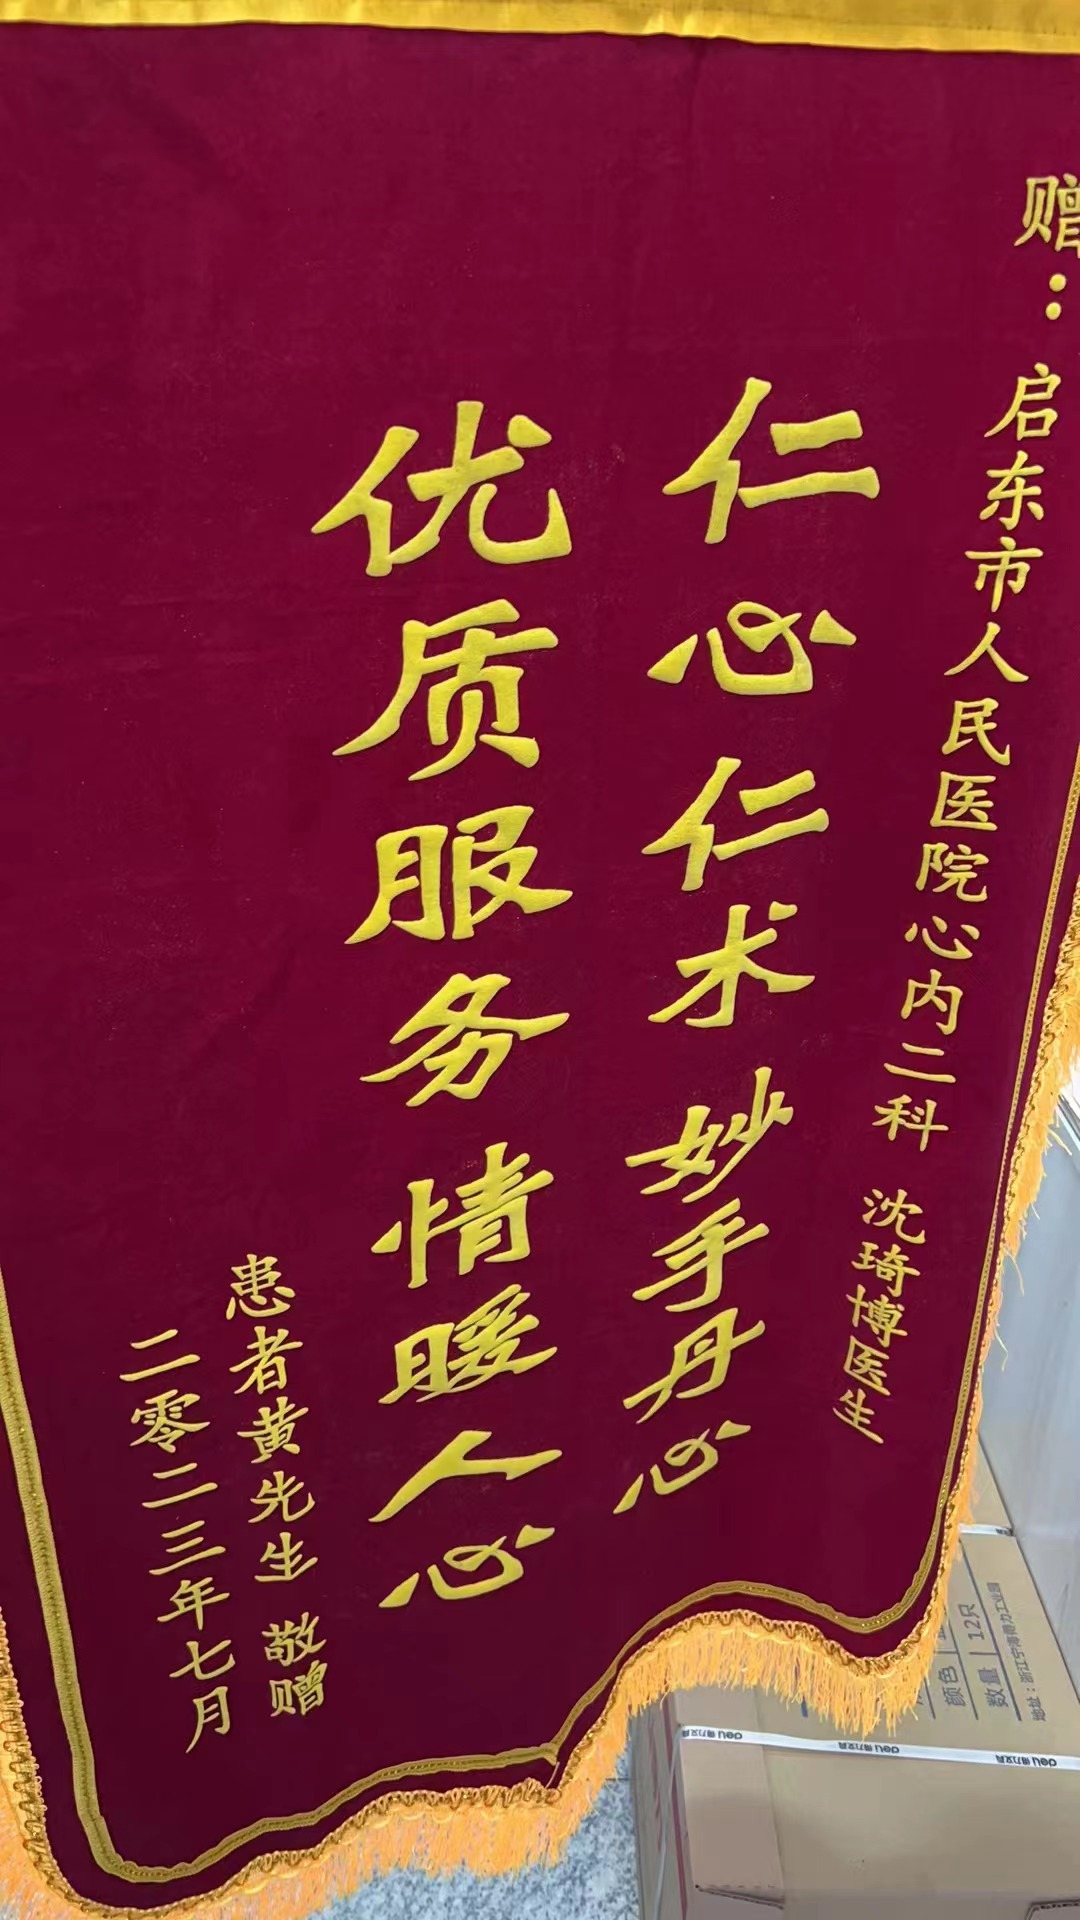 赠：启东市人民医院心内二科 沈琦博医生
仁心仁术 妙手丹心
优质服务 情暖人心
患者黄先生 敬赠
二零二三年七月
颜色
数量 12只
地址：浙江宁海得力工业园
deli 得力文具
deli 得力文具
deli 得力文具